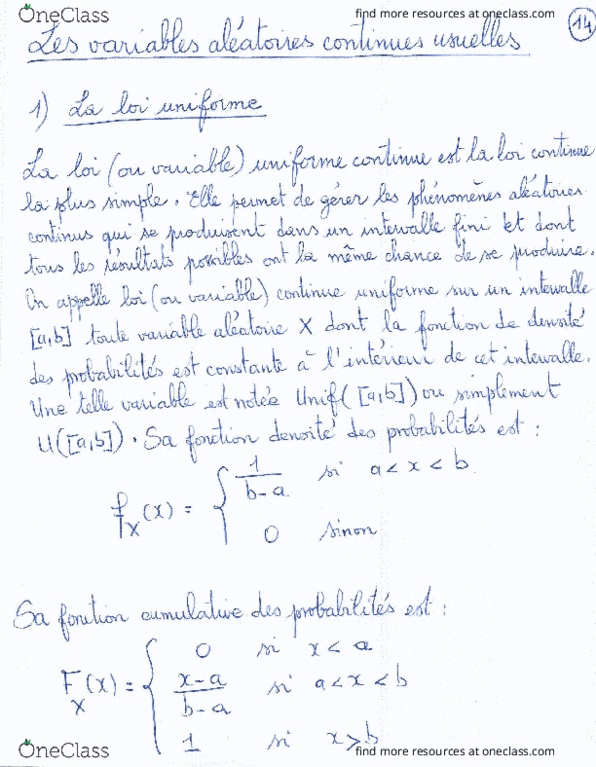 OneClass find more resources at oneclass.com
14
Les variables aléatoires continues usuelles
1) La loi uniforme
La loi (ou variable) uniforme continue est la loi continue
la plus simple. Elle permet de gérer les phénomènes aléatoires
continus qui se produisent dans un intervalle fini et dont
tous les résultats possibles ont la même chance de se produire.
On appelle loi (ou variable) continue uniforme sur un intervalle
[a,b] toute variable aléatoire X dont la fonction de densité
des probabilités est constante à l'intérieur de cet intervalle.
Une telle variable est notée Unif([a,b]) ou simplement
U([a,b]). Sa fonction densité des probabilités est :
f_X(x) = { 1/(b-a) si a < x < b
0 sinon
Sa fonction cumulative des probabilités est :
F_X(x) = { 0 si x < a
(x-a)/(b-a) si a < x < b
1 si x > b
OneClass find more resources at oneclass.com